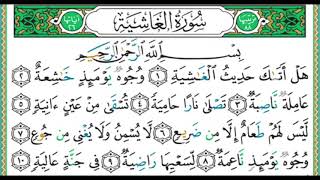 سُورَةُ الغَاشِيَةِ
بِسْمِ اللَّهِ الرَّحْمَٰنِ الرَّحِيمِ
هَلْ أَتَىٰكَ حَدِيثُ الْغَٰشِيَةِ ١ وُجُوهٌ يَوْمَئِذٍ خَٰشِعَةٌ ٢
عَامِلَةٌ نَّاصِبَةٌ ٣ تَصْلَىٰ نَارًا حَامِيَةً ٤ تُسْقَىٰ مِنْ عَيْنٍ ءَانِيَةٍ ٥
لَّيْسَ لَهُمْ طَعَامٌ إِلَّا مِن ضَرِيعٍ ٦ لَّا يُسْمِنُ وَلَا يُغْنِى مِن جُوعٍ ٧
وُجُوهٌ يَوْمَئِذٍ نَّاعِمَةٌ ٨ لِّسَعْيِهَا رَاضِيَةٌ ٩ فِى جَنَّةٍ عَالِيَةٍ ١٠